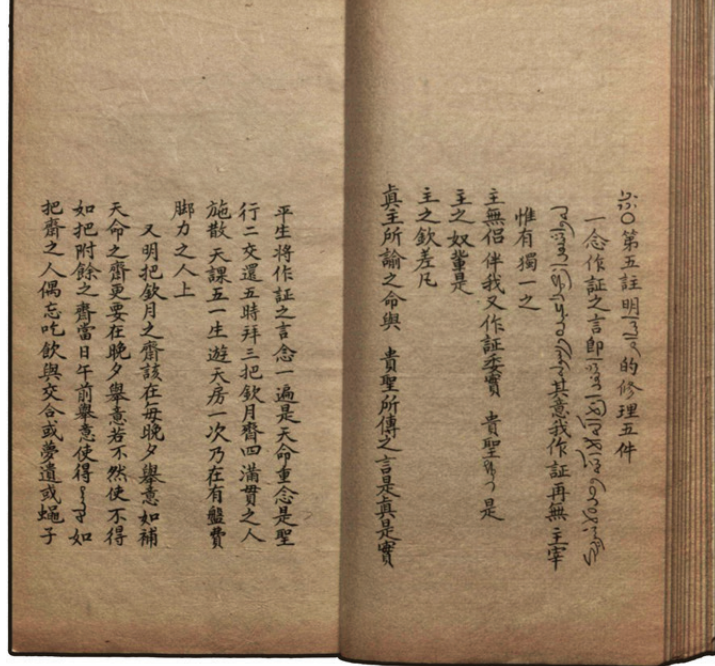 ○第五註明 的修理五件
一念作証之言即
其意我作証再無主宰
惟有獨一之
主無侶伴我又作証委實 貴聖 是
主之奴輩是
主之欽差凡
眞主所諭之命與 貴聖所傳之言是眞是實
平生將作証之言念一遍是天命重念是聖
行二交還五時拜三把欽月齋四滿貫之人
施散 天課五一生遊天房一次乃在有盤費
脚力之人上
又明把欽月之齋該在每晚夕舉意如補
天命之齋更要在晚夕舉意若不然使不得
如把附餘之齋當日午前舉意使得 如
把齋之人偶忘吃飲與交合或夢遺或蝇子